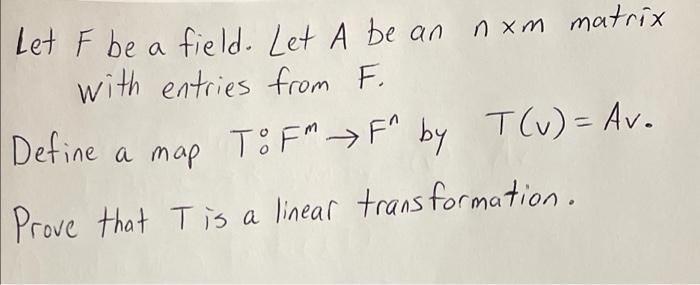 Let F be a field. Let A be an n×m matrix
with entries from F.
Define a map T: Fᵐ → Fⁿ by T(v) = Av.
Prove that T is a linear transformation.